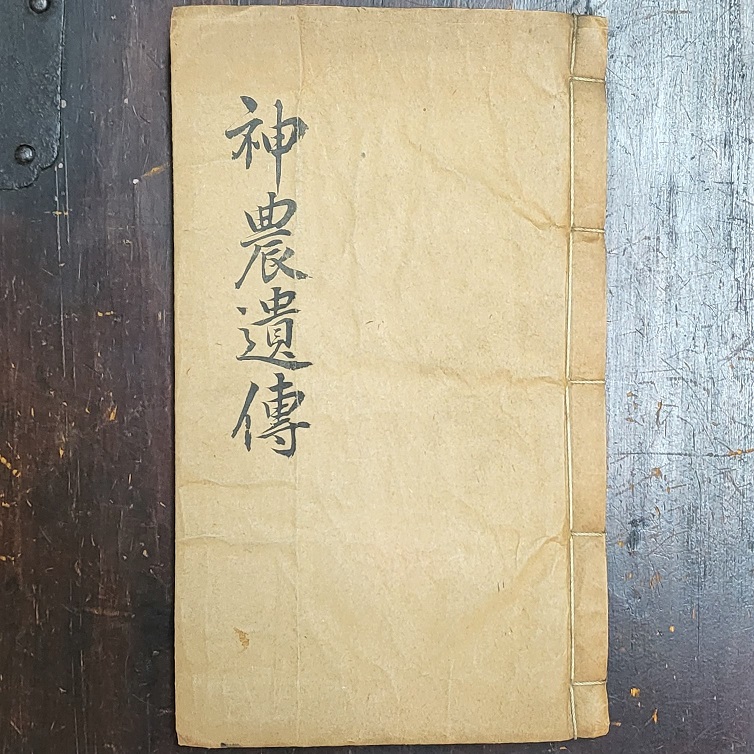 神農遺傳